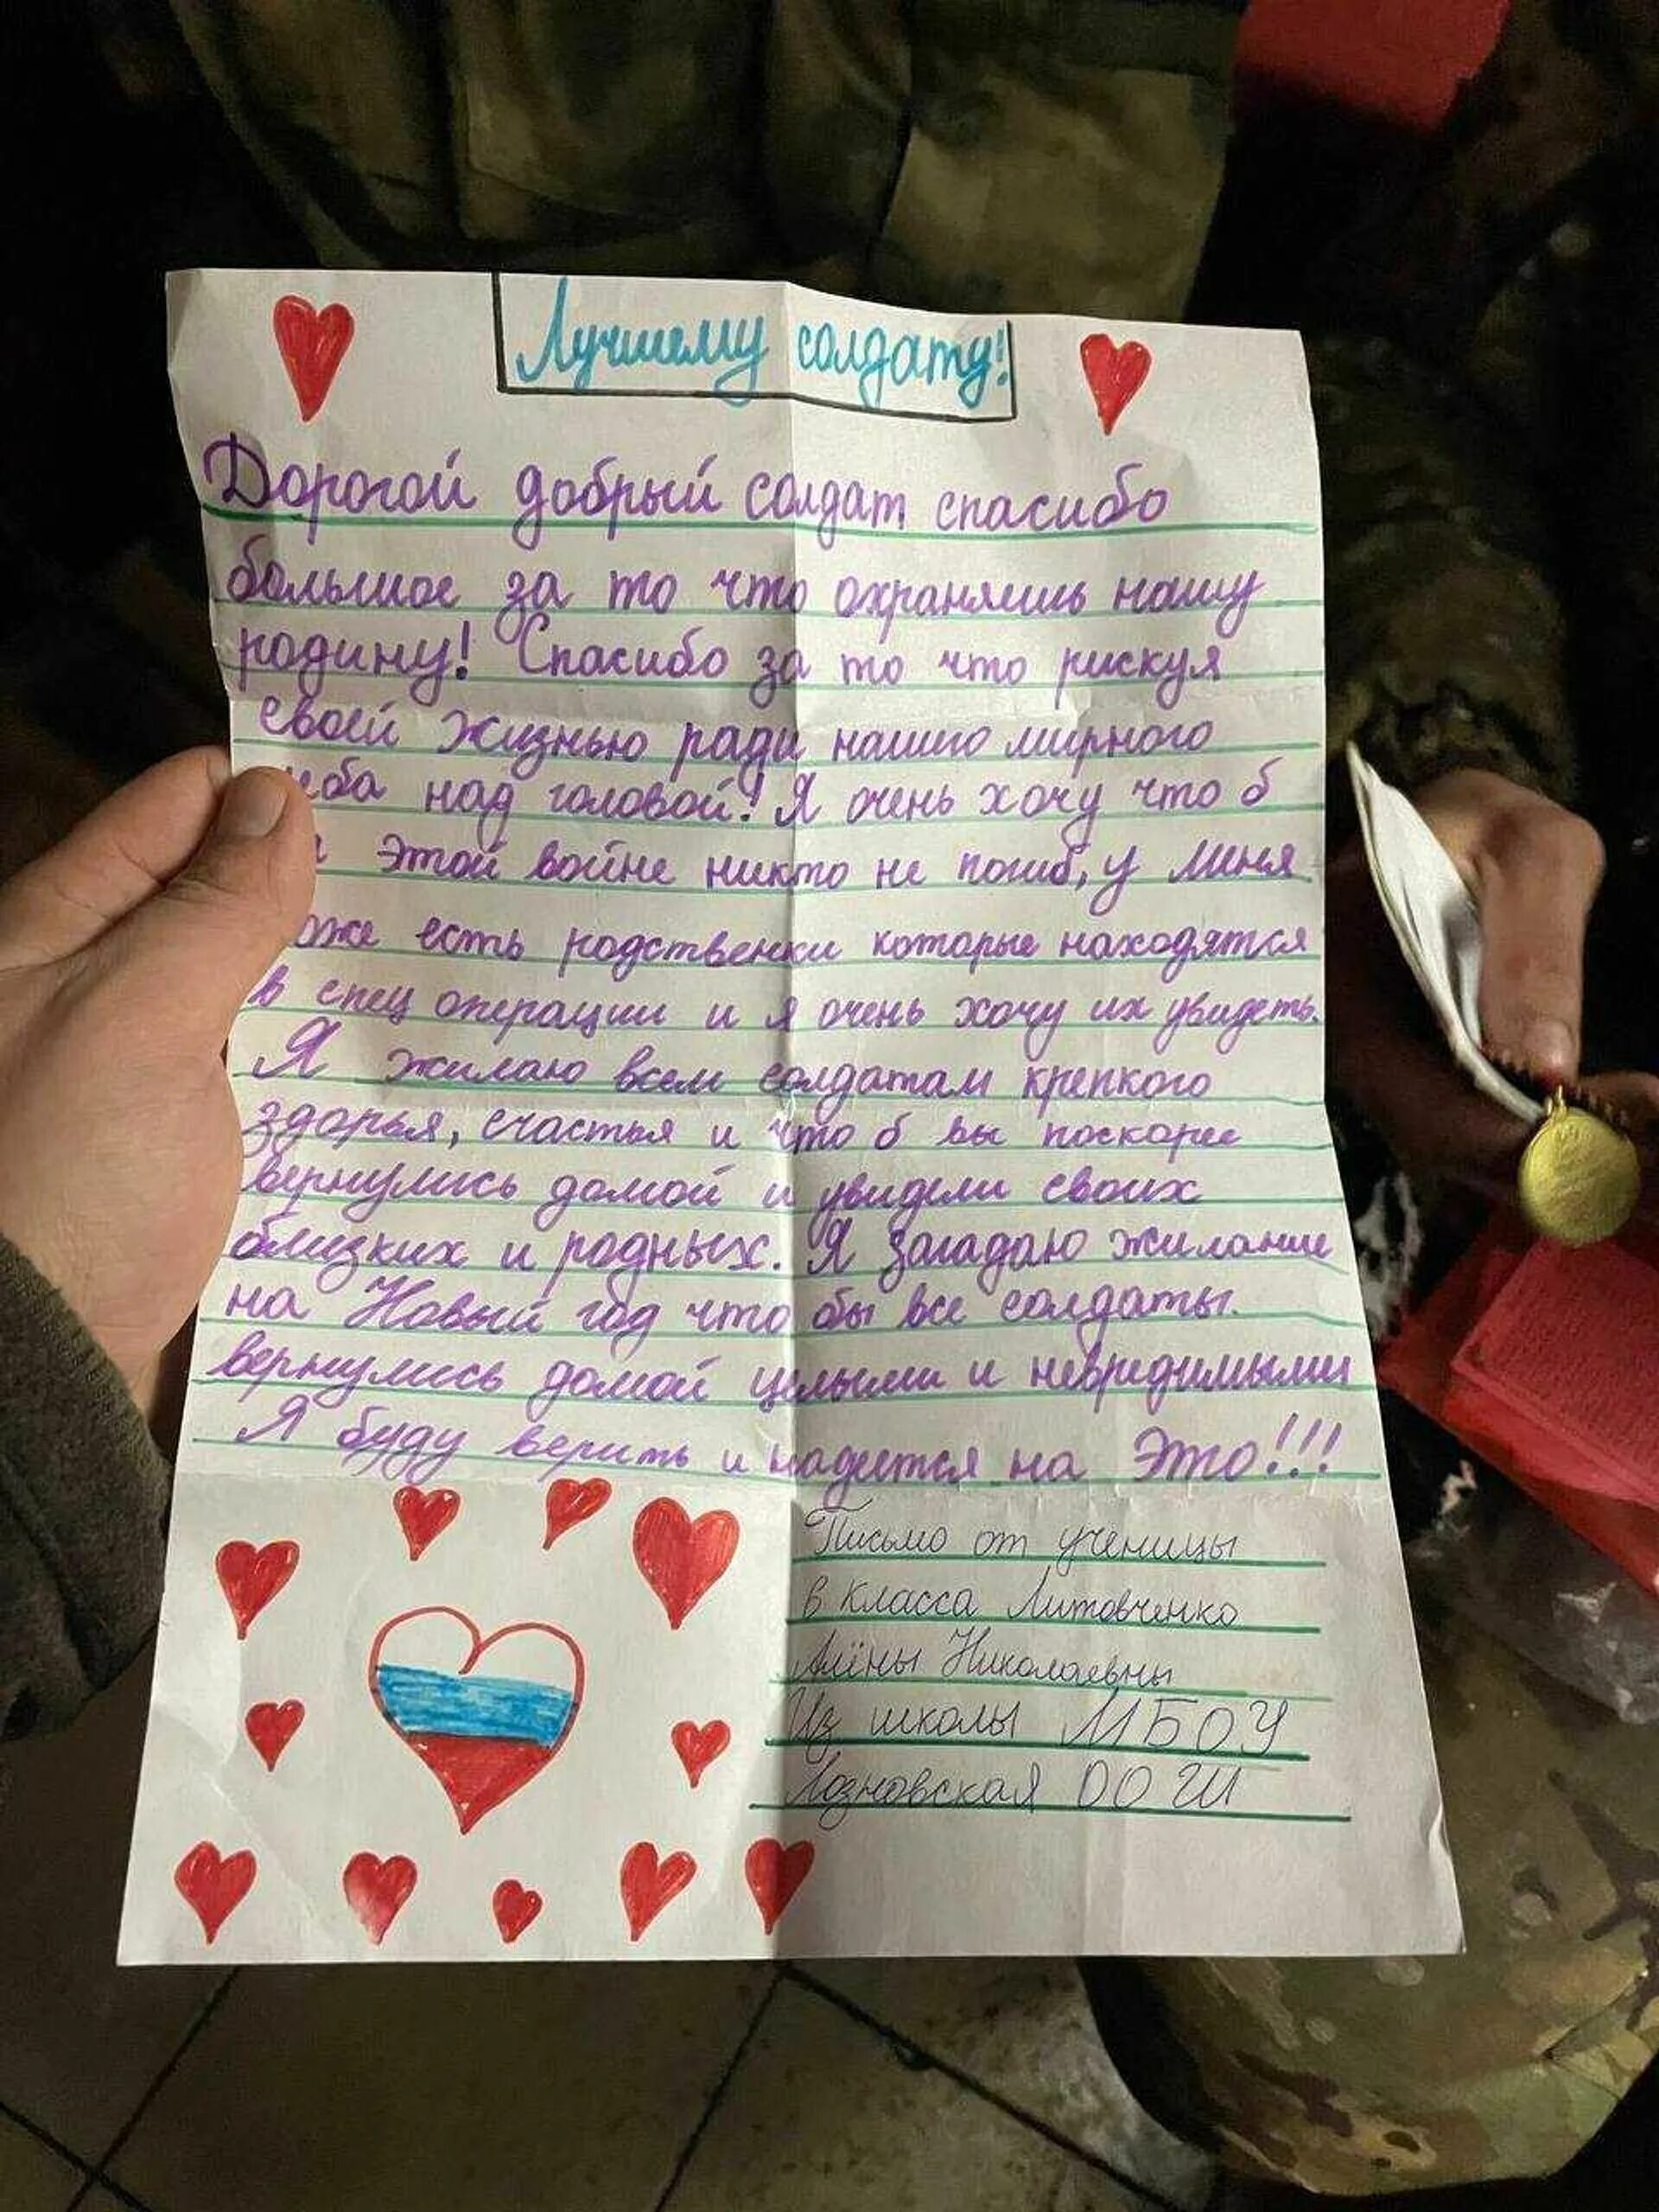 Лучшему солдату!
Дорогой добрый солдат спасибо
большое за то что охраняешь нашу
родину! Спасибо за то что рискуя
своей жизнью ради нашего мирного
неба над головой! Я очень хочу что б
этой войне никто не погиб, у меня
оже есть родственки которые находятся
в спец операции и я очень хочу их увидеть.
Я жилаю всем солдатам крепкого
здорья, счастья и что б вы поскорее
вернулись домой и увидели своих
близких и родных. Я загадаю жилание
на Новый год что бы все солдаты.
вернулись домой целыми и невредимыми
Я буду верить и надеится на Это!!!
Письмо от ученицы
6 класса Литовченко
Алёны Николаевны
Из школы МБОУ
Лозновская ООШ